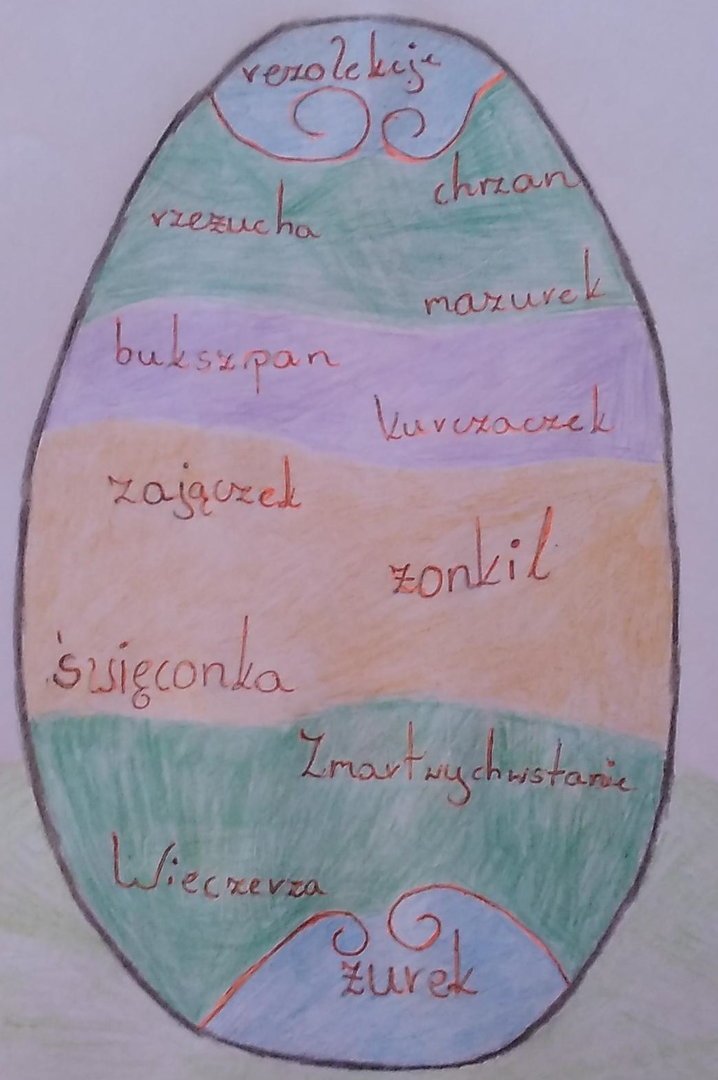 rezolekcje
chrzan
rzeżucha
mazurek
bukszpan
kurczaczek
zajączek
żonkil
święconka
Zmartwychwstanie
Wieczerza
żurek